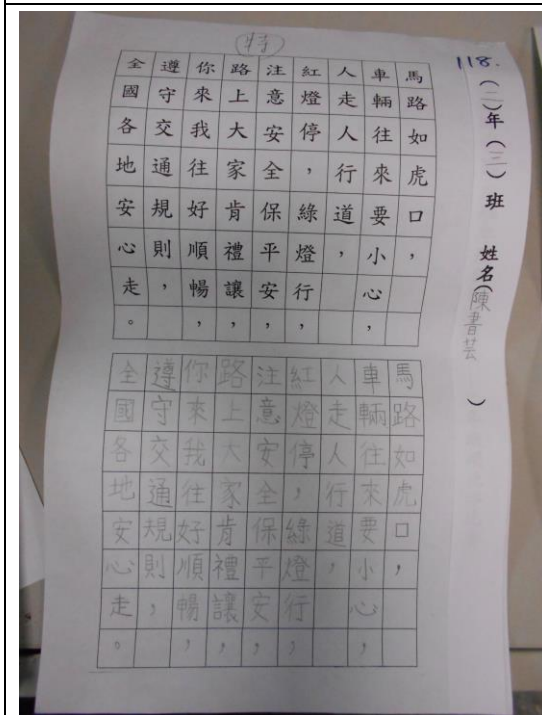 (特)
118.
(二)年(三)班 姓名(陳書芸)
馬路如虎口，
車輛往來要小心，
人走人行道，
紅燈停，綠燈行，
注意安全保平安，
路上大家肯禮讓，
你來我往好順暢，
遵守交通規則，
全國各地安心走。
馬路如虎口，
車輛往來要小心，
人走人行道，
紅燈停，綠燈行，
注意安全保平安，
路上大家肯禮讓，
你來我往好順暢，
遵守交通規則，
全國各地安心走。